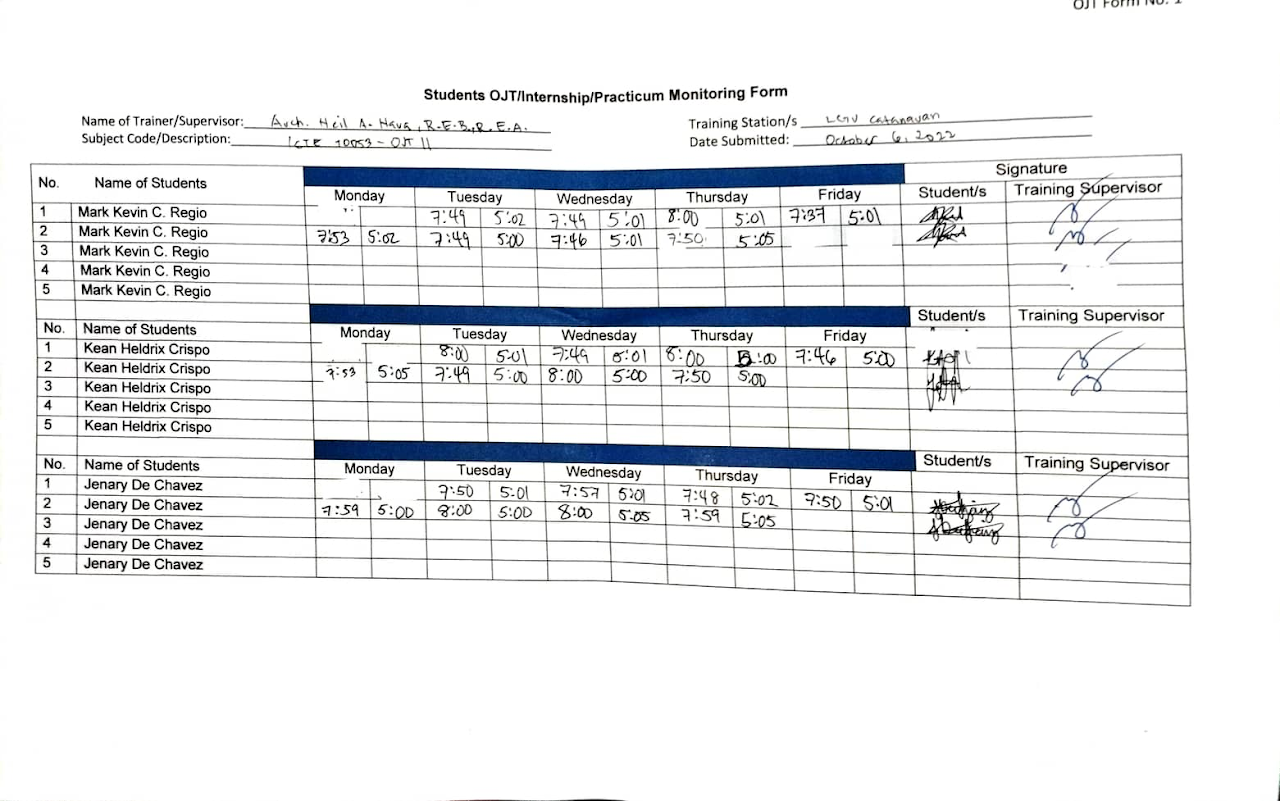 OJT Form No. 1
Students OJT/Internship/Practicum Monitoring Form
Name of Trainer/Supervisor: Arch. Neil A. Nava, R.E.B, R.E.A.
Training Station/s LGU Catanauan
Subject Code/Description: 10053 - OJT II
Date Submitted: October 6, 2022
Signature
No. Name of Students Monday Tuesday Wednesday Thursday Friday Student/s Training Supervisor
1 Mark Kevin C. Regio 7:49 5:02 7:49 5:01 8:00 5:01 7:37 5:01
2 Mark Kevin C. Regio 7:53 5:02 7:49 5:00 7:46 5:01 7:50 5:05
3 Mark Kevin C. Regio
4 Mark Kevin C. Regio
5 Mark Kevin C. Regio
No. Name of Students Monday Tuesday Wednesday Thursday Friday Student/s Training Supervisor
1 Kean Heldrix Crispo 8:00 5:01 7:49 5:01 8:00 5:00 7:46 5:00
2 Kean Heldrix Crispo 7:53 5:05 7:49 5:00 8:00 5:00 7:50 5:00
3 Kean Heldrix Crispo
4 Kean Heldrix Crispo
5 Kean Heldrix Crispo
No. Name of Students Monday Tuesday Wednesday Thursday Friday Student/s Training Supervisor
1 Jenary De Chavez 7:50 5:01 7:57 5:01 7:48 5:02 7:50 5:01
2 Jenary De Chavez 7:59 5:00 8:00 5:00 8:00 5:05 7:59 5:05
3 Jenary De Chavez
4 Jenary De Chavez
5 Jenary De Chavez